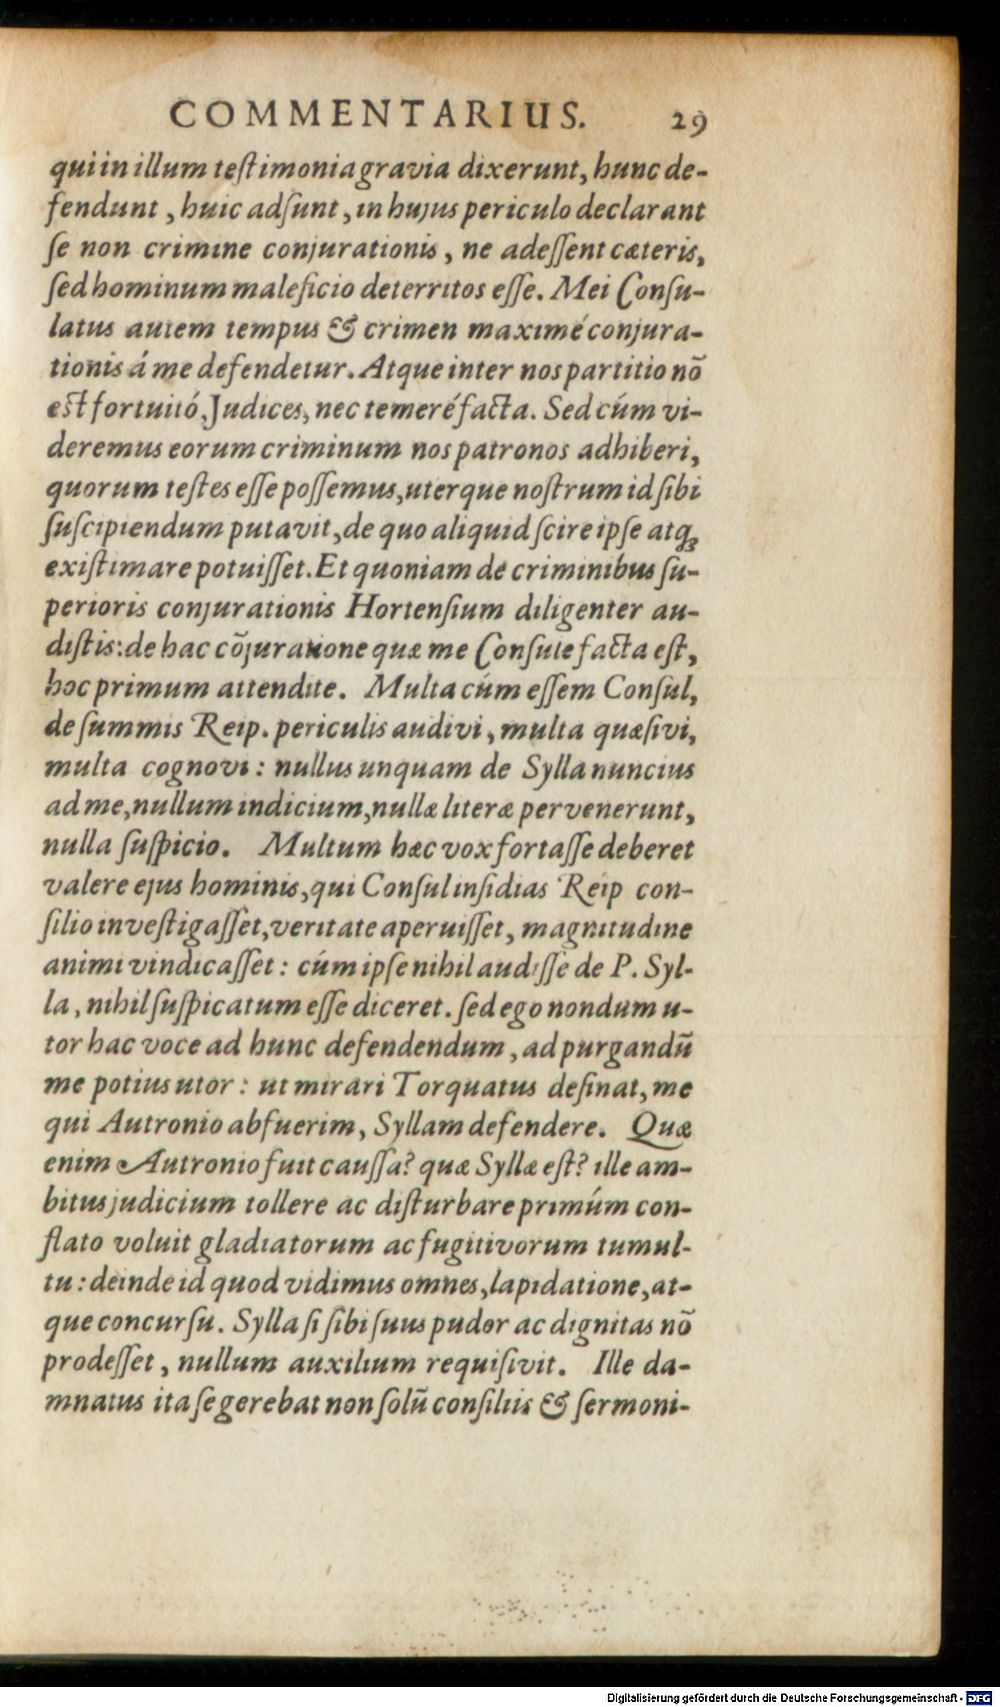 COMMENTARIUS. 29
qui in illum testimonia gravia dixerunt, hunc de-
fendunt, huic adsunt, in hujus periculo declarant
se non crimine conjurationis, ne adessent cæteris,
sed hominum maleficio deterritos esse. Mei Consu-
latus autem tempus & crimen maximé conjura-
tionis á me defendetur. Atque inter nos partitio nō
est fortuitó, Judices, nec temeré facta. Sed cúm vi-
deremus eorum criminum nos patronos adhiberi,
quorum testes esse possemus, uterque nostrum id sibi
suscipiendum putavit, de quo aliquid scire ipse atq;
existimare potuisset. Et quoniam de criminibus su-
perioris conjurationis Hortensium diligenter au-
distis: de hac cōjuratione quæ me Consule facta est,
hoc primum attendite. Multa cúm essem Consul,
de summis Reip. periculis audivi, multa quæsivi,
multa cognovi: nullus unquam de Sylla nuncius
ad me, nullum indicium, nullæ literæ pervenerunt,
nulla suspicio. Multum hæc vox fortasse deberet
valere ejus hominis, qui Consul insidias Reip con-
silio investigasset, veritate aperuisset, magnitudine
animi vindicasset: cúm ipse nihil audisse de P. Syl-
la, nihil suspicatum esse diceret. sed ego nondum u-
tor hac voce ad hunc defendendum, ad purgandū
me potius utor: ut mirari Torquatus desinat, me
qui Autronio abfuerim, Syllam defendere. Quæ
enim Autronio fuit caussa? quæ Syllæ est? ille am-
bitus judicium tollere ac disturbare primúm con-
flato voluit gladiatorum ac fugitivorum tumul-
tu: deinde id quod vidimus omnes, lapidatione, at-
que concursu. Sylla si sibi suus pudor ac dignitas nō
prodesset, nullum auxilium requisivit. Ille da-
mnatus ita se gerebat non solū consiliis & sermoni-
Digitalisierung gefördert durch die Deutsche Forschungsgemeinschaft - DFG